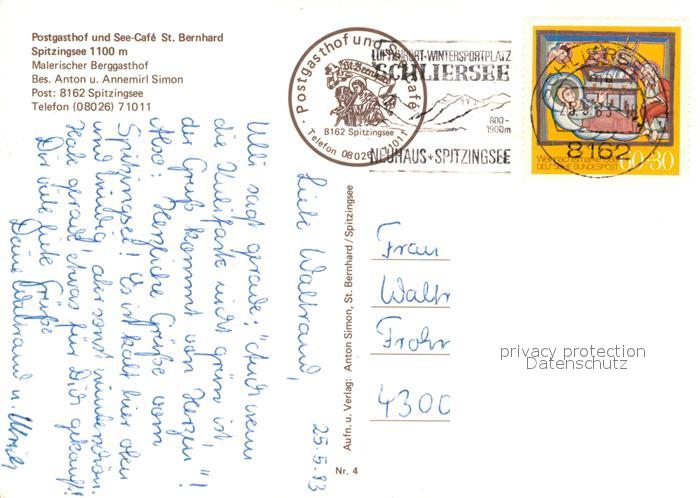 Postgasthof und See-Café St. Bernhard
Spitzingsee 1100 m
Malerischer Berggasthof
Bes. Anton u. Annemirl Simon
Post: 8162 Spitzingsee
Telefon (08026) 71011
Postgasthof und See-Café
St. Bernhard
8162 Spitzingsee
Telefon 08026 71011
LUFTKURORT-WINTERSPORTPLATZ
SCHLIERSEE
800-
1900m
NEUHAUS+SPITZINGSEE
8162
Weihnachtsmarke
DEUTSCHE BUNDESPOST
60+30
25.5.83
Liebe Waltraud,
Ulli sagt gerade: "Auch wenn
die Tinte nicht grün ist,
der Gruß kommt von Herzen"!
Also: Herzliche Grüße vom
Spitzingsee! Es ist kalt hier oben
und windig, aber sonst wunderschön.
Hab gerade etwas für Dich gekauft!
Dir viele liebe Grüße
Deine Waltraud u. Ulrich
Aufn. u. Verlag: Anton Simon, St. Bernhard/Spitzingsee
Nr. 4
Frau
Waltr
Frohn
4300
privacy protection
Datenschutz